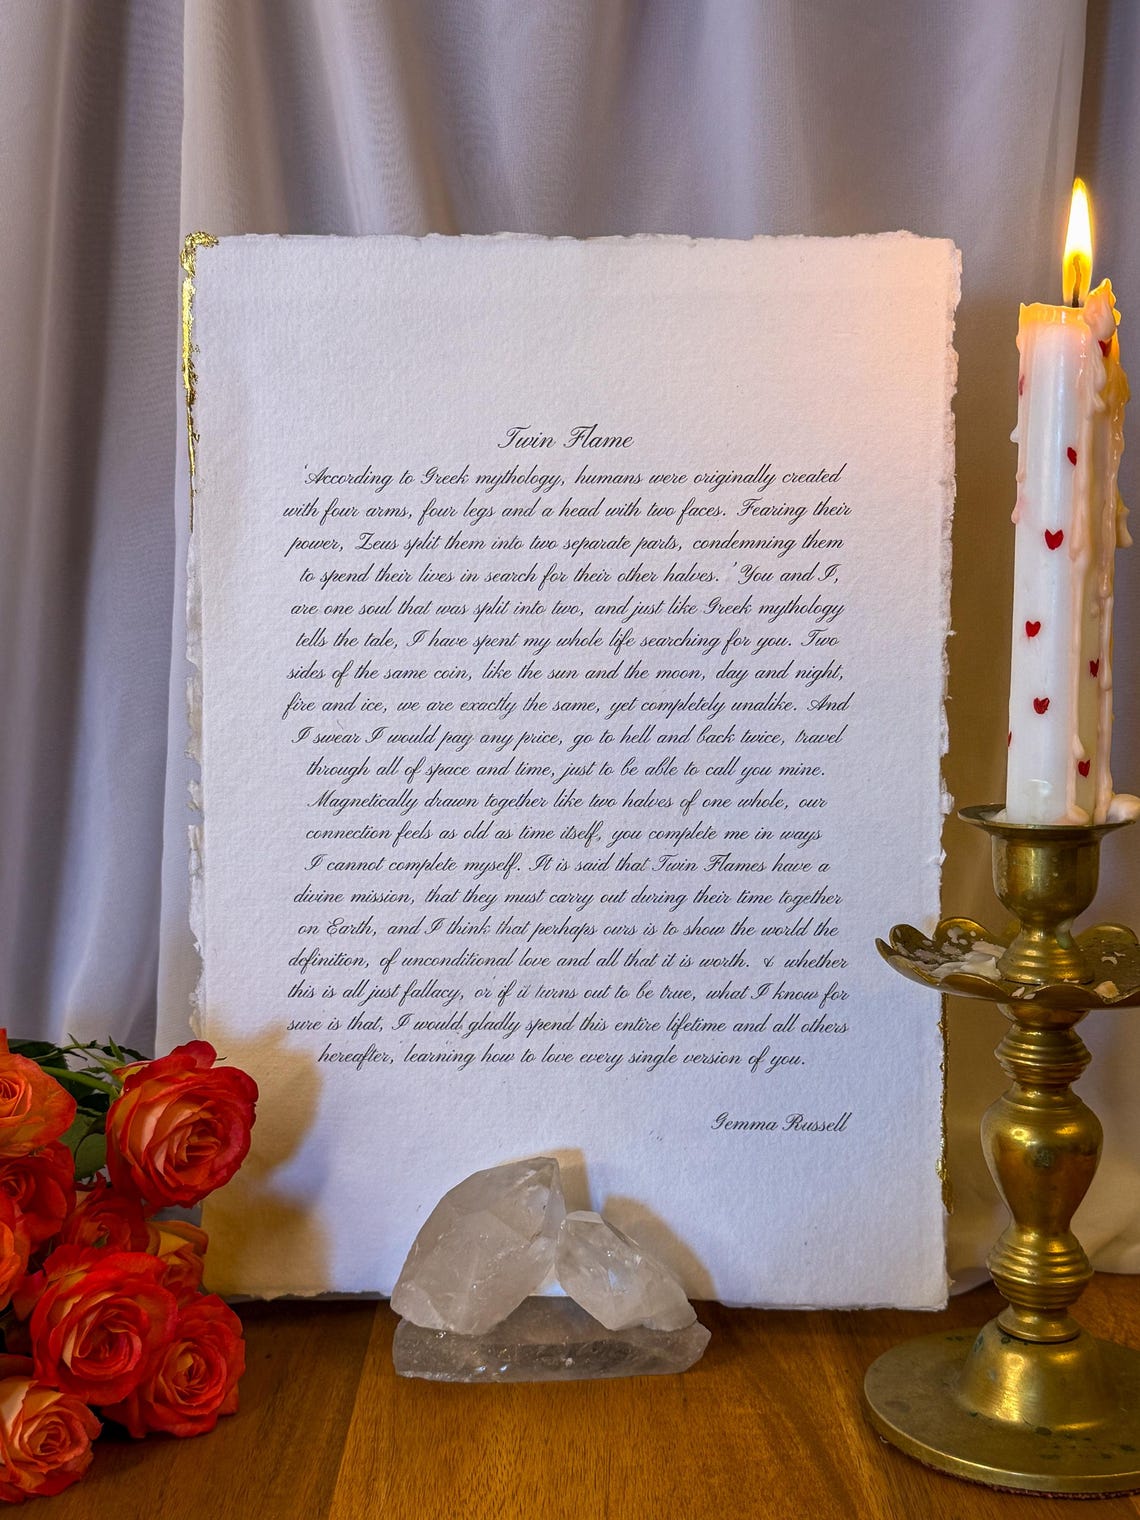 Twin Flame
'According to Greek mythology, humans were originally created
with four arms, four legs and a head with two faces. Fearing their
power, Zeus split them into two separate parts, condemning them
to spend their lives in search for their other halves.' You and I,
are one soul that was split into two, and just like Greek mythology
tells the tale, I have spent my whole life searching for you. Two
sides of the same coin, like the sun and the moon, day and night,
fire and ice, we are exactly the same, yet completely unalike. And
I swear I would pay any price, go to hell and back twice, travel
through all of space and time, just to be able to call you mine.
Magnetically drawn together like two halves of one whole, our
connection feels as old as time itself, you complete me in ways
I cannot complete myself. It is said that Twin Flames have a
divine mission, that they must carry out during their time together
on Earth, and I think that perhaps ours is to show the world the
definition, of unconditional love and all that it is worth. & whether
this is all just fallacy, or if it turns out to be true, what I know for
sure is that, I would gladly spend this entire lifetime and all others
hereafter, learning how to love every single version of you.
Gemma Russell